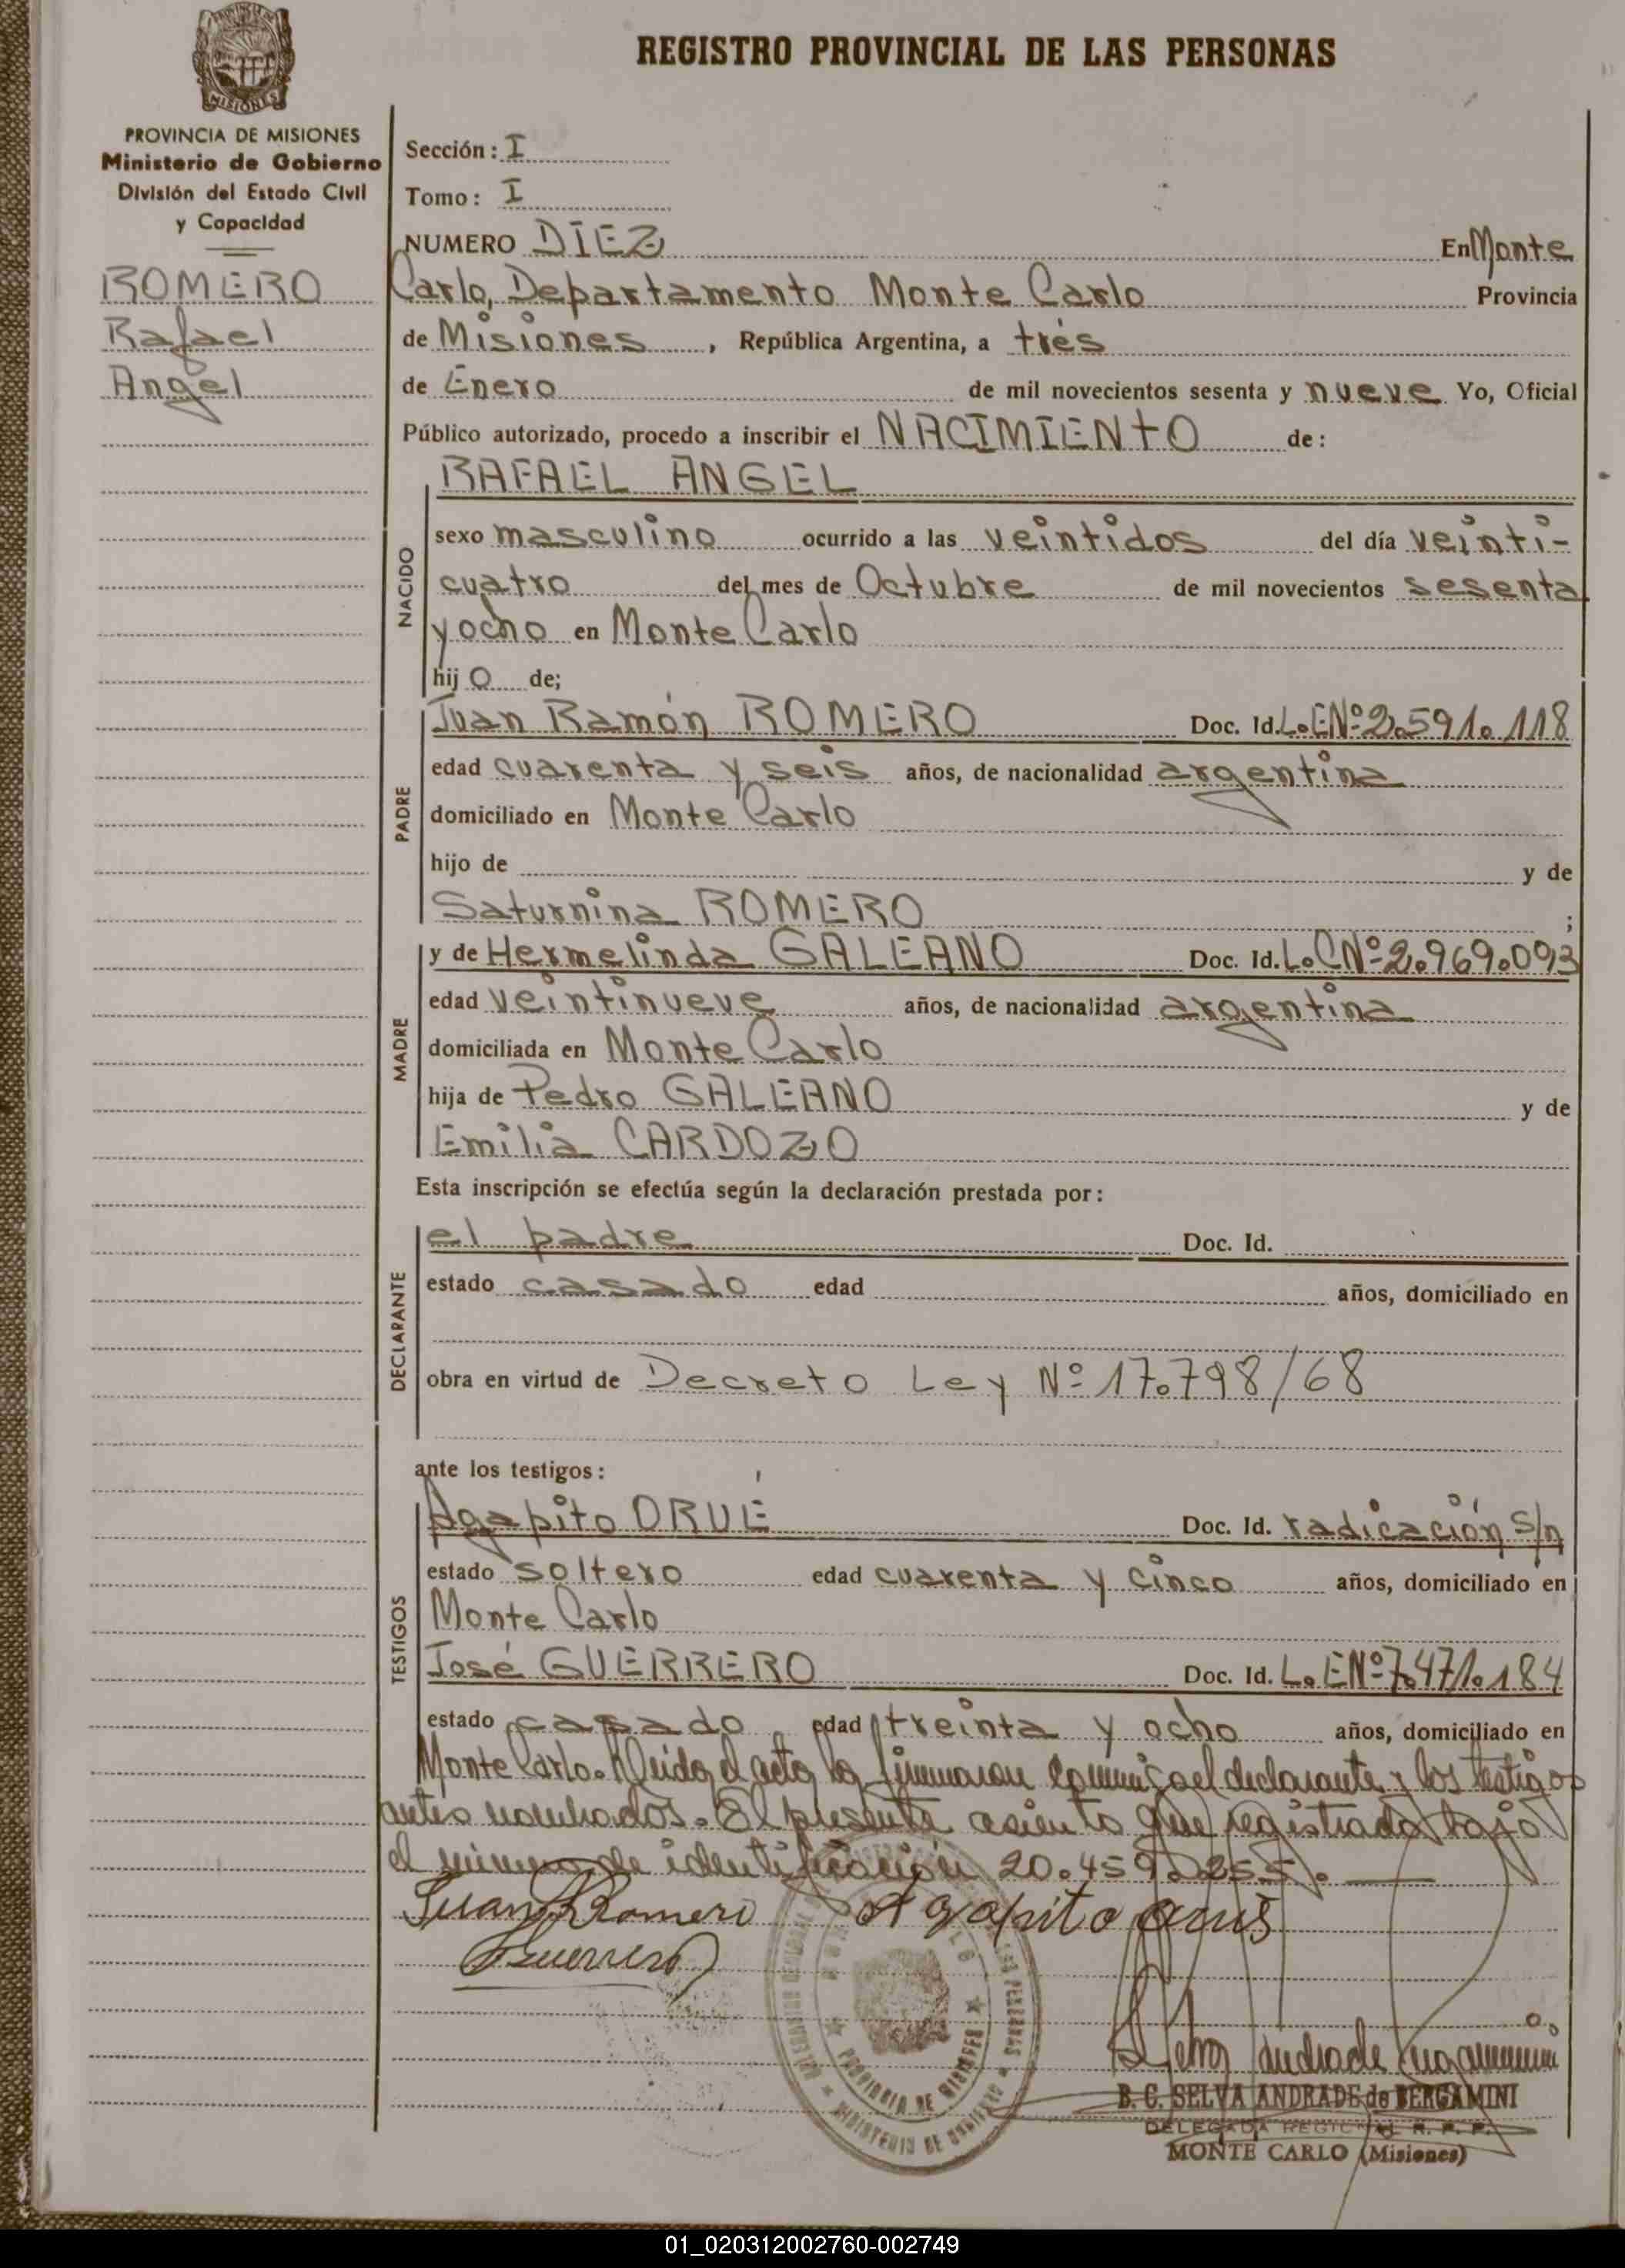 REGISTRO PROVINCIAL DE LAS PERSONAS
MISIONES
PROVINCIA DE MISIONES
Ministerio de Gobierno
División del Estado Civil
y Capacidad
ROMERO
Rafael
Angel
Sección: I
Tomo: I
NUMERO DIEZ En Monte
Carlo, Departamento Monte Carlo Provincia
de Misiones, República Argentina, a trés
de Enero de mil novecientos sesenta y nueve Yo, Oficial
Público autorizado, procedo a inscribir el NACIMIENTO de:
NACIDO
RAFAEL ANGEL
sexo masculino ocurrido a las veintidos del día veinti-
cuatro del mes de Octubre de mil novecientos sesenta
y ocho en Monte Carlo
hijo de;
PADRE
Juan Ramón ROMERO Doc. Id. L.E Nº 2.591.118
edad cuarenta y seis años, de nacionalidad argentina
domiciliado en Monte Carlo
hijo de y de
Saturnina ROMERO ;
MADRE
y de Hermelinda GALEANO Doc. Id. L.C Nº 2.969.093
edad veintinueve años, de nacionalidad argentina
domiciliada en Monte Carlo
hija de Pedro GALEANO y de
Emilia CARDOZO
Esta inscripción se efectúa según la declaración prestada por:
DECLARANTE
el padre Doc. Id.
estado casado edad años, domiciliado en
obra en virtud de Decreto Ley Nº 17.798/68
ante los testigos:
TESTIGOS
Agapito ORUÉ Doc. Id. radicación s/n
estado soltero edad cuarenta y cinco años, domiciliado en
Monte Carlo
José GUERRERO Doc. Id. L.E Nº 7.471.184
estado casado edad treinta y ocho años, domiciliado en
Monte Carlo. Leida el acta la firmaron conmigo el declarante y los testigos
antes nombrados. El presente asiento fue registrado bajo
el número de identificación 20.459.255.
Juan R Romero Agapito Orué
Guerrero
PROVINCIA DE MISIONES
MINISTERIO DE GOBIERNO
Selva Andrade
B. C. SELVA ANDRADE de BERGAMINI
DELEGADA REGIONAL R. P. P.
MONTE CARLO (Misiones)
01_020312002760-002749